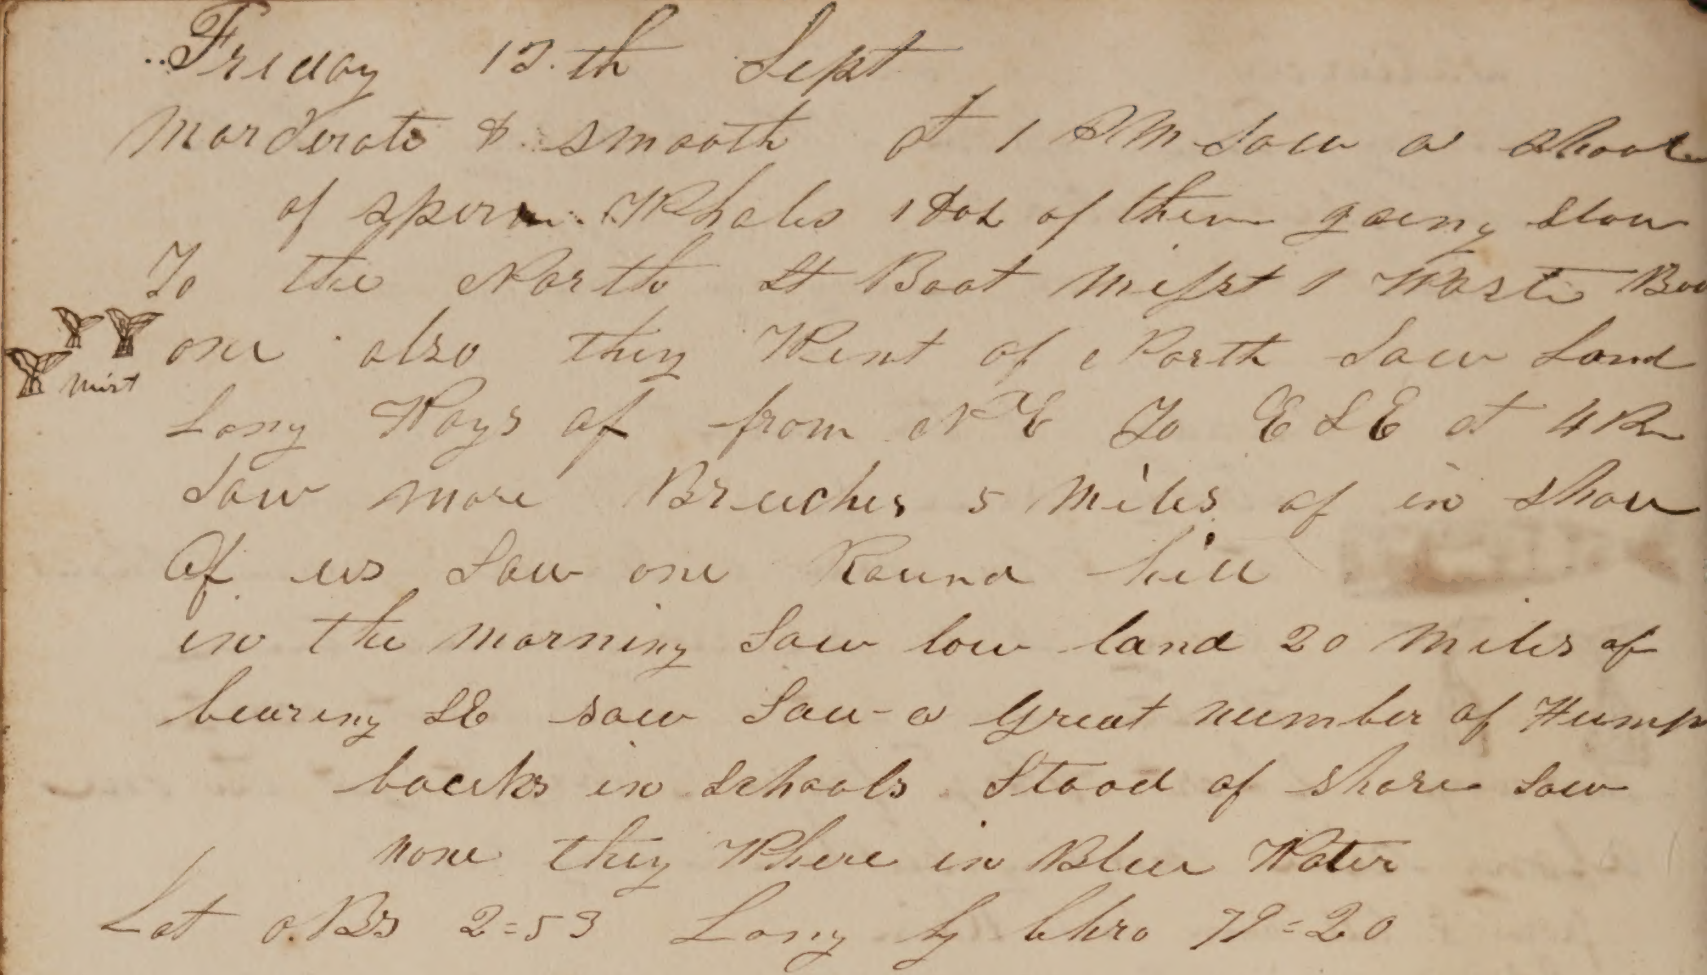 Friday 13.th Sept
Marderate & smooth at 1 PM Saw a shoal
of sperm Whales of them going slow
To the North St Boat Misst 1 Waste Boa
one also they Went of North Saw Land
mist
Long Ways of from NE To ESE at 4 Pm
Saw more Breaches 5 Miles of in shore
Of us Saw one Round hill
in the morning Saw low land 20 Miles of
bearing SE saw Saw a Great number of Hump
backs in schools Stood of shore Saw
none they Where in Blue Water
Lat oBs 2=53 Long by Chro 79=20